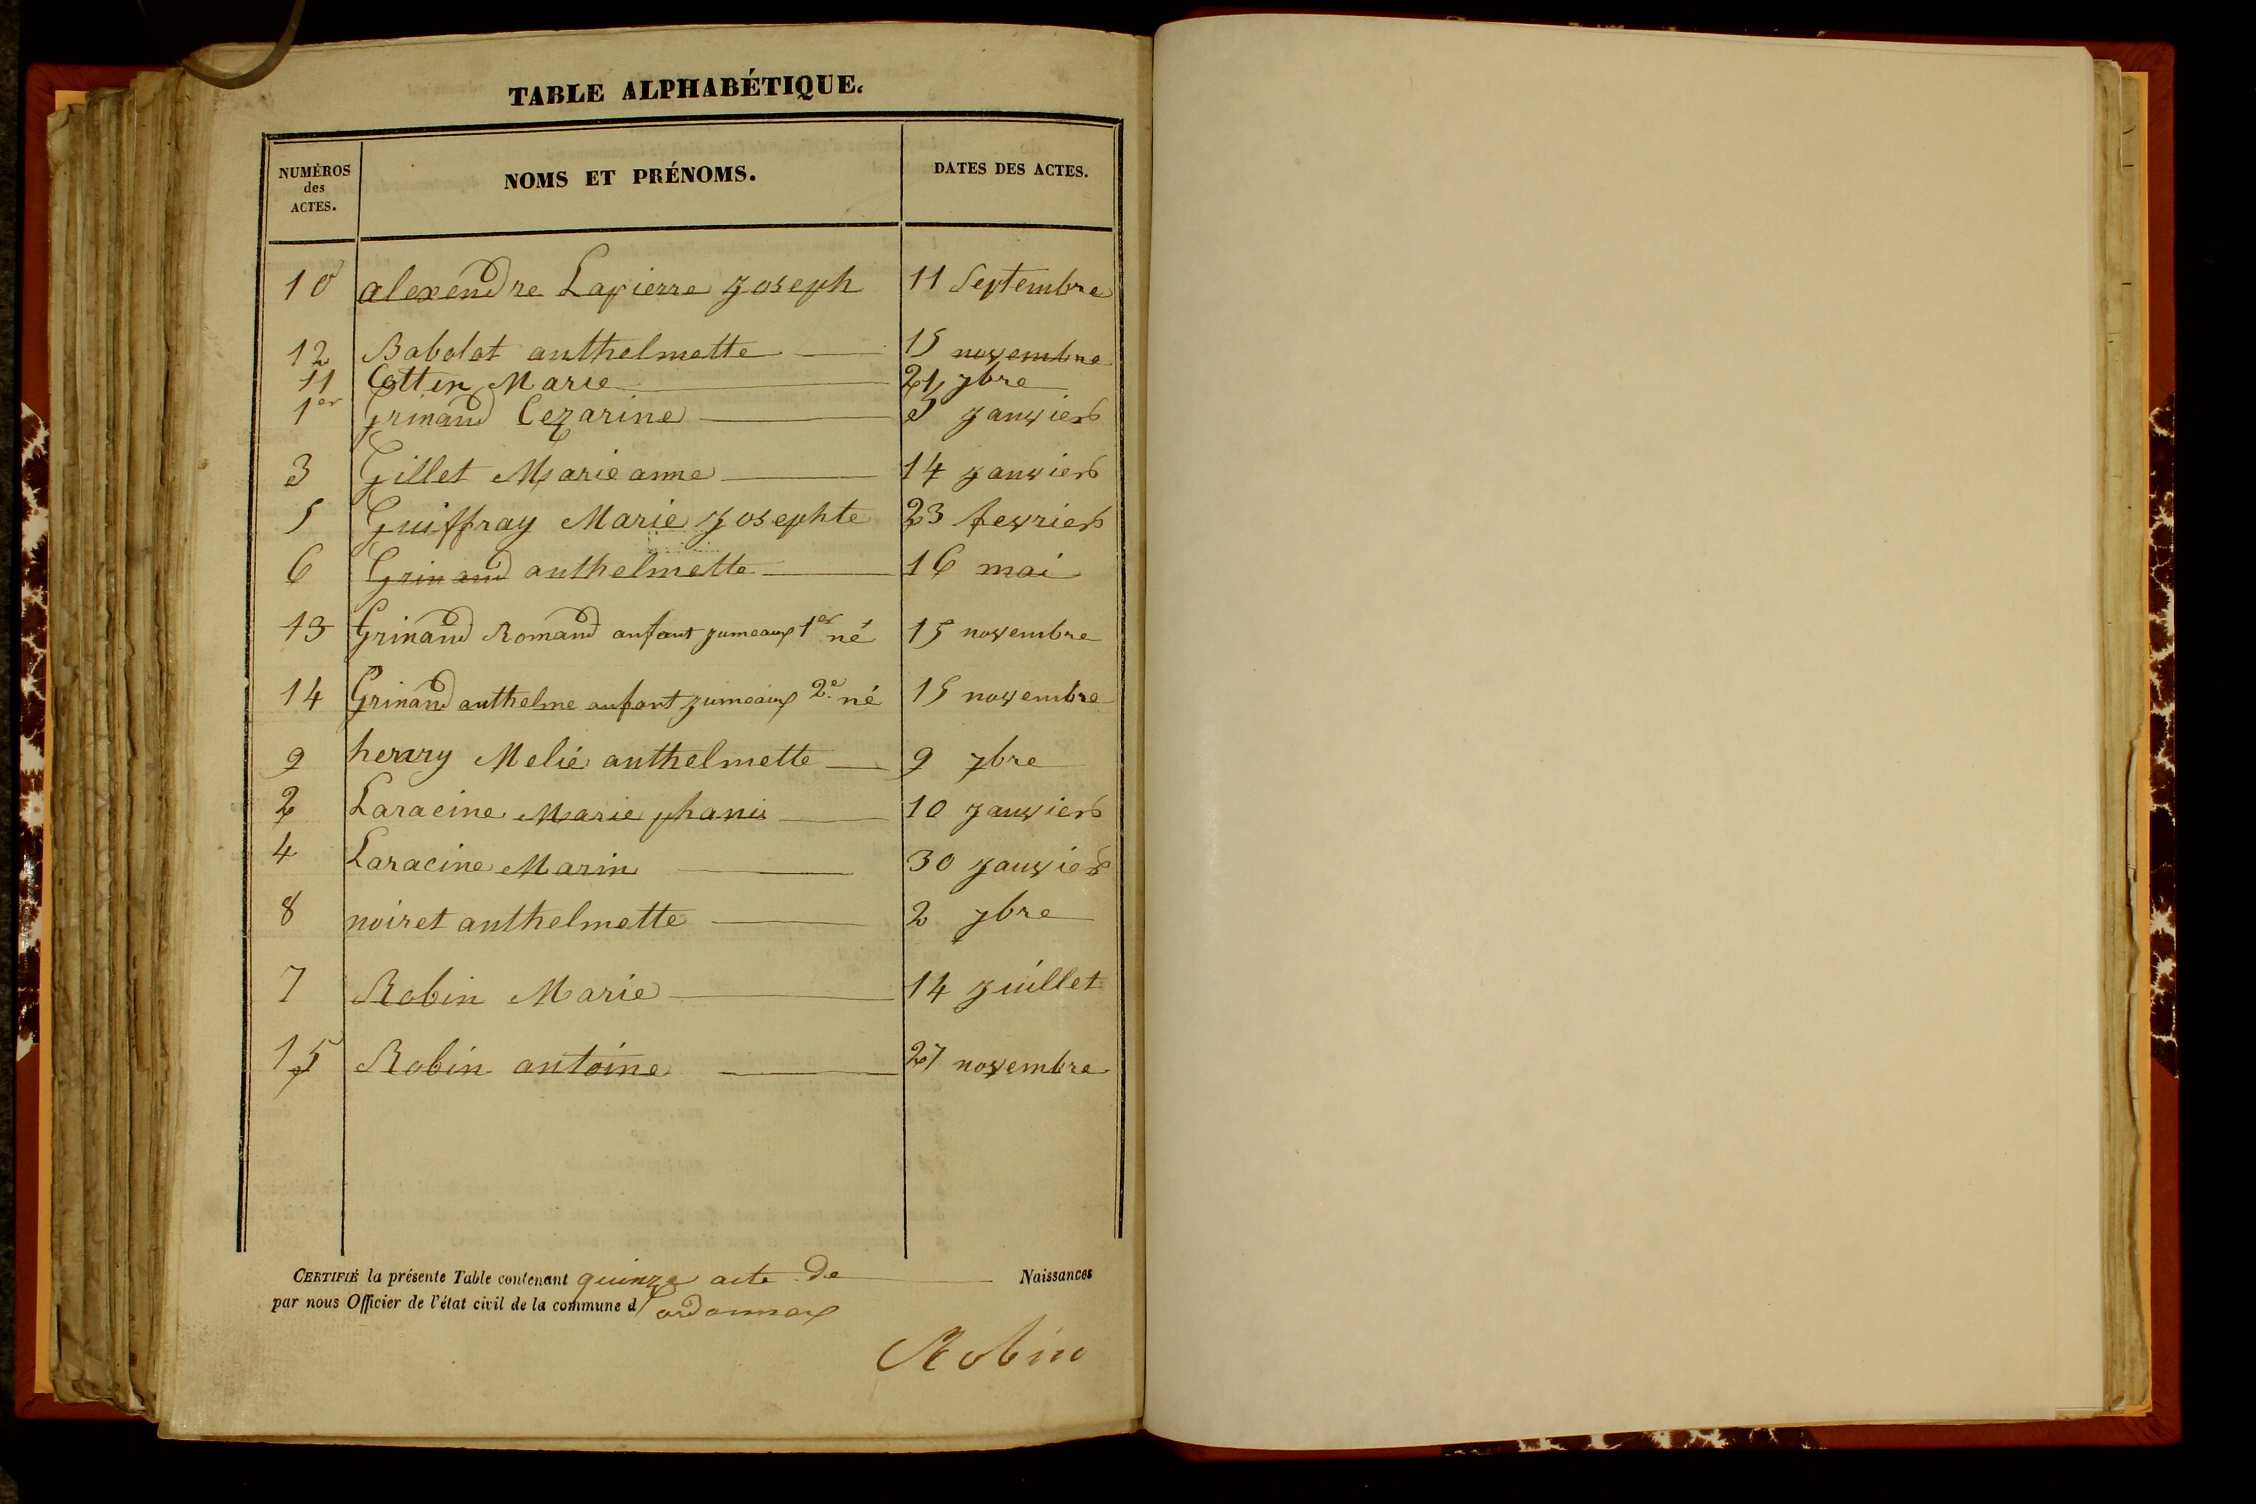 TABLE ALPHABÉTIQUE.
NUMÉROS des ACTES. NOMS ET PRÉNOMS. DATES DES ACTES.
10 alexendre Lapierre Joseph 11 Septembre
12 Babolat anthelmette 15 novembre
11 Cottin Marie 21 7bre
1er Grinand Cezarine 5 janvier
3 Gillet Marie anne 14 janvier
5 Guiffray Marie Josephte 23 fevrier
6 Grinand anthelmette 16 mai
13 Grinand Romand anfant jumeaux 1er né 15 novembre
14 Grinand anthelme anfant jumeaux 2e né 15 novembre
9 henrry Melie anthelmette 9 7bre
2 Laracine Marie phanis 10 janvier
4 Laracine Marin 30 janvier
8 noiret anthelmette 2 7bre
7 Robin Marie 14 juillet
15 Robin antoine 27 novembre
CERTIFIÉ la présente Table contenant quinze acte de Naissances
par nous Officier de l'état civil de la commune d Cordonnax
Robin